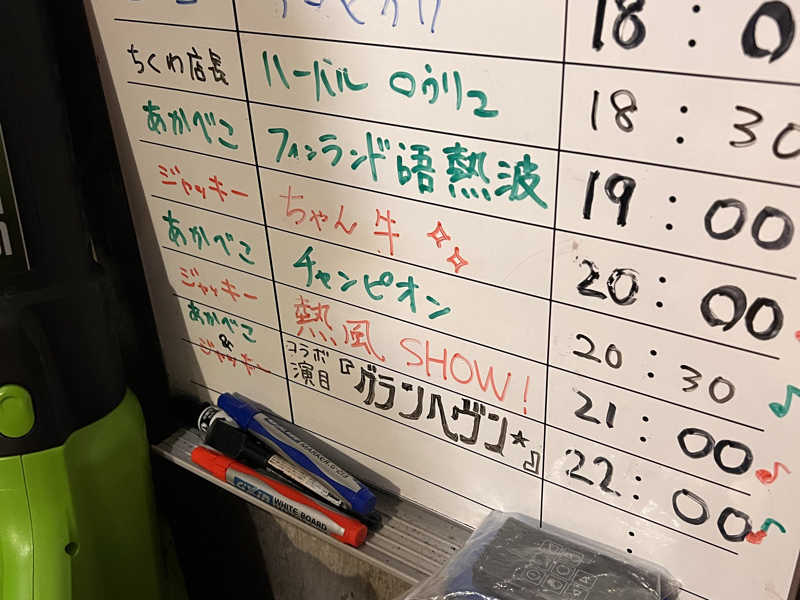 18:00
ちくわ店長 ハーバル ロウリュ 18:30
あかべこ フィンランド語熱波 19:00
ジャッキー ちゃん牛 20:00
あかべこ チャンピオン 20:30
ジャッキー 熱風 SHOW! 21:00
あかべこ & ジャッキー コラボ演目『グランヘヴン☆』 22:00
:
WHITE BOARD